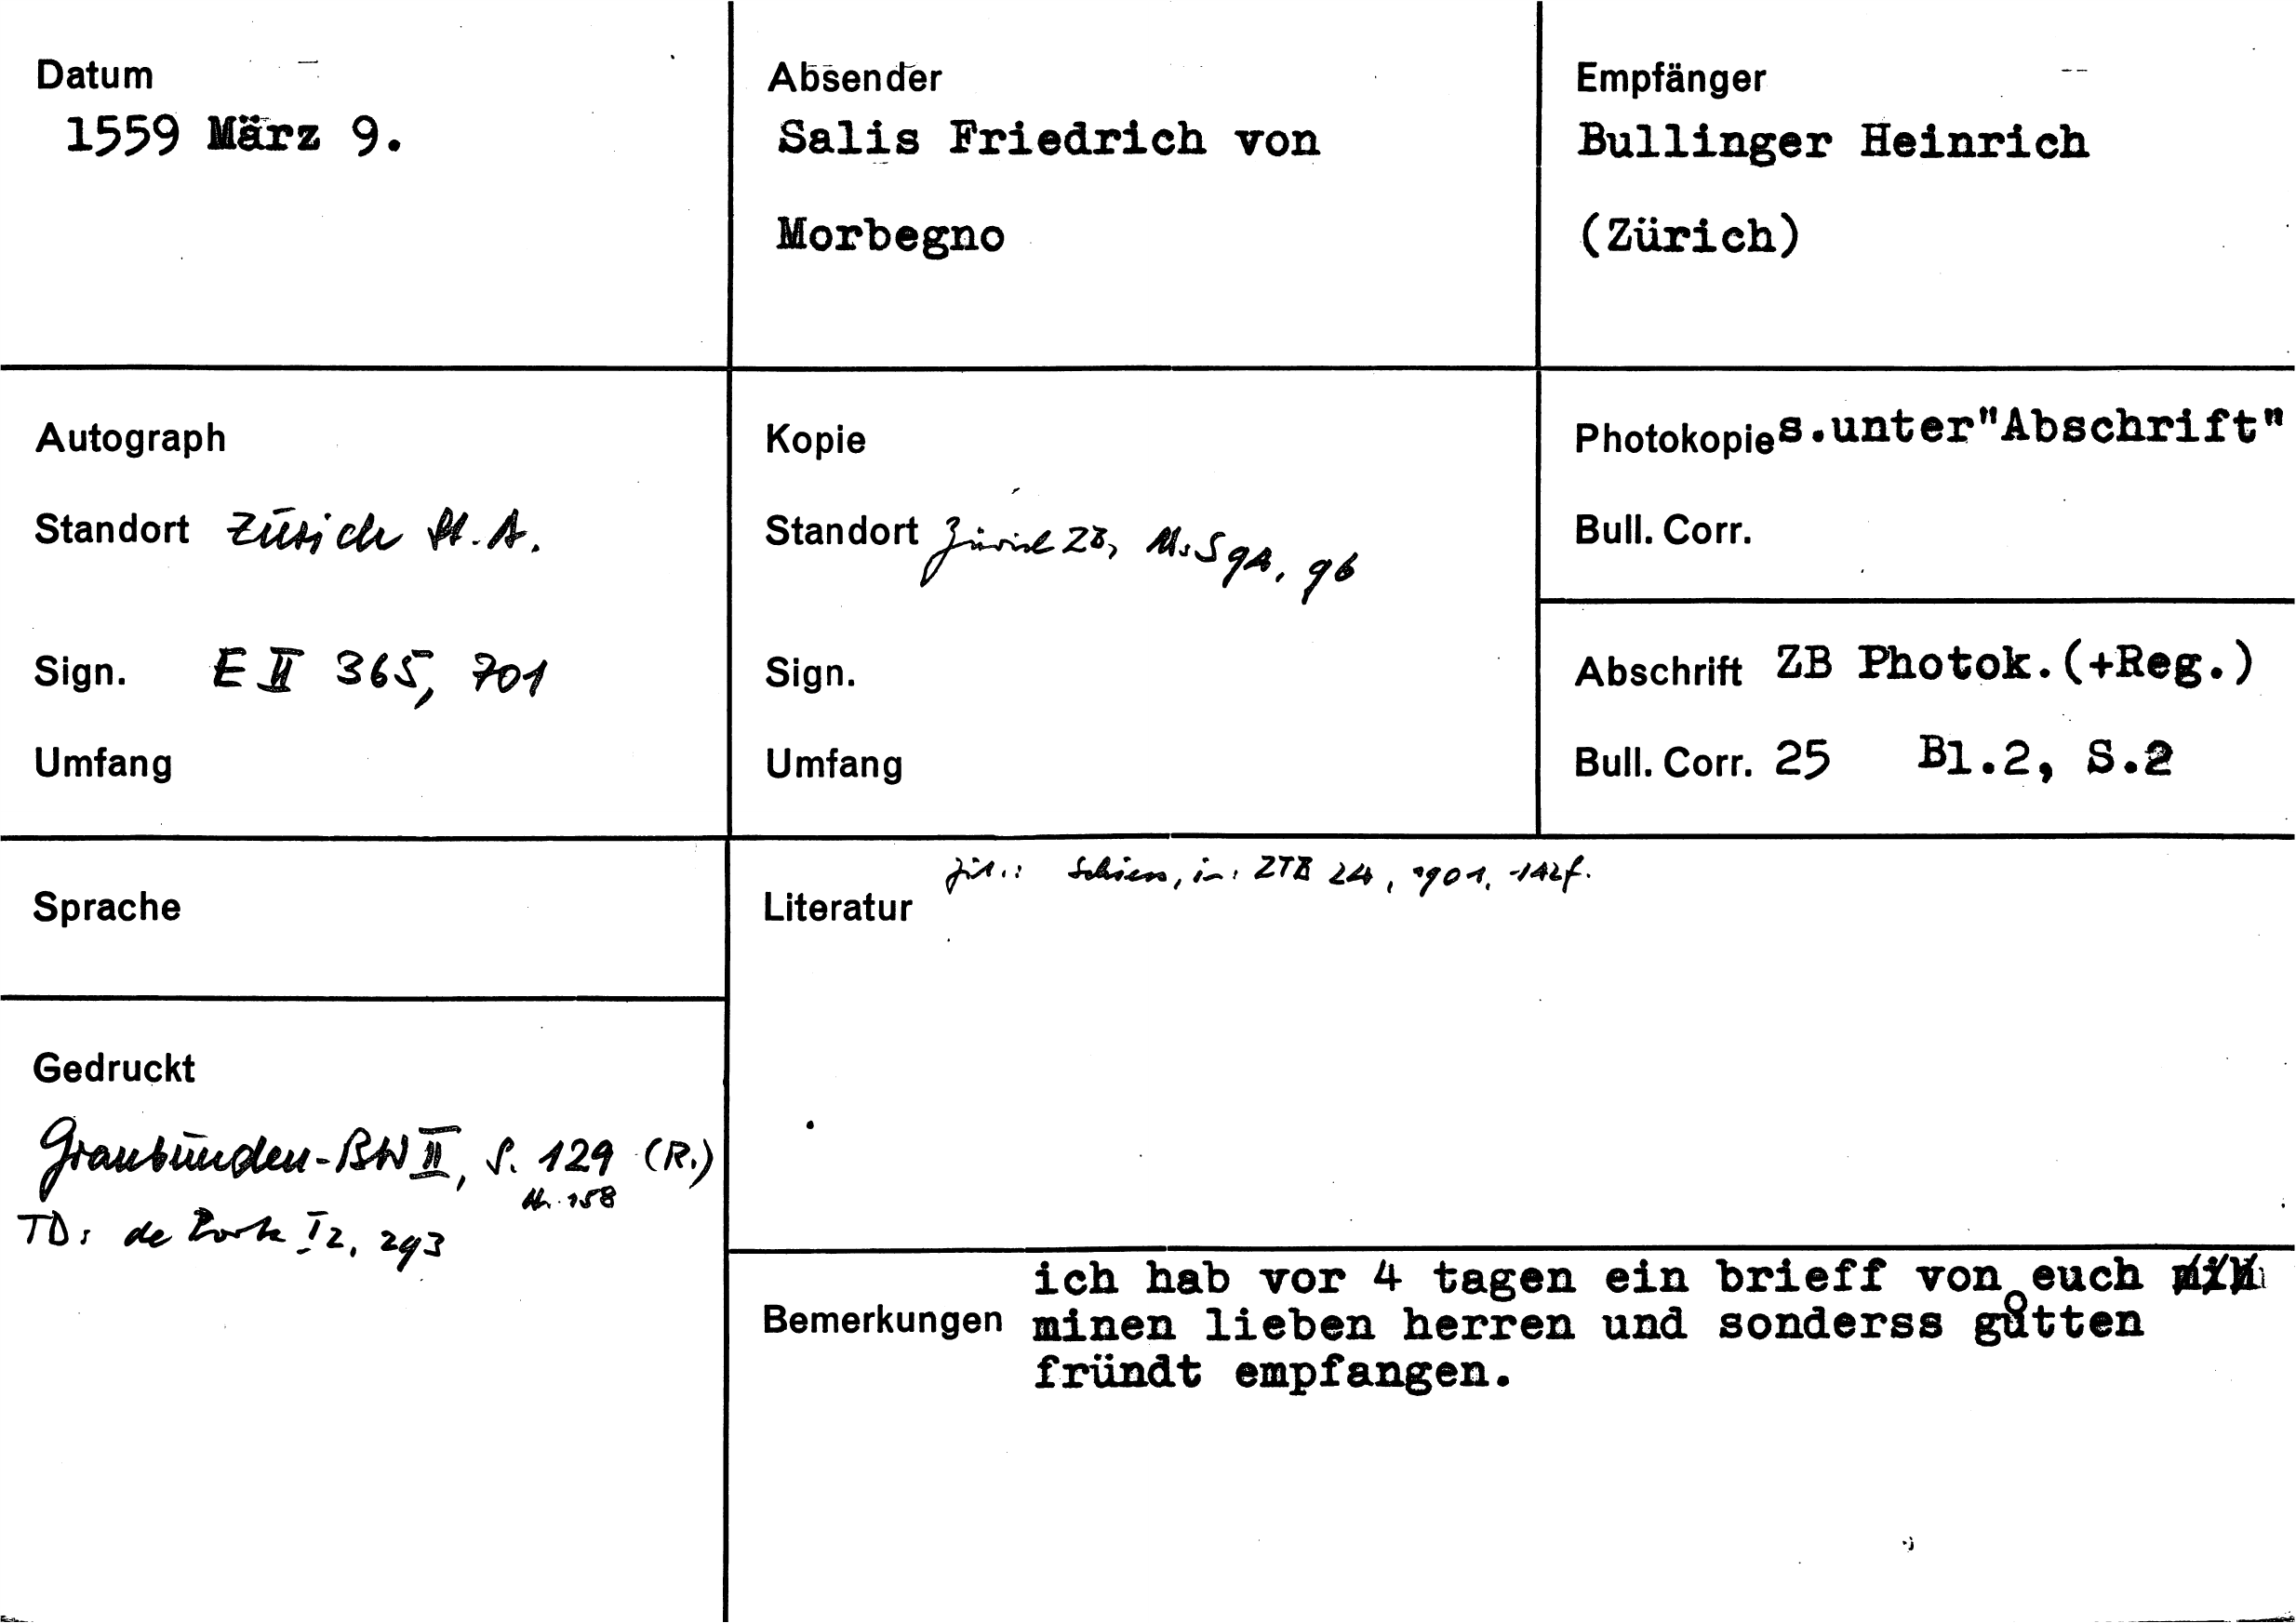 Datum
1559 März 9.
Absender
Salis Friedrich von
Morbegno
Empfänger
Bullinger Heinrich
(Zürich)
Autograph
Standort Zürich St. A.
Sign. E II 365, 701
Umfang
Kopie
Standort Zürich ZB, Ms S 94, 96
Sign.
Umfang
Photokopie s.unter"Abschrift"
Bull. Corr.
Abschrift ZB Photok.(+Reg.)
Bull. Corr. 25 Bl.2, S.2
Sprache
Literatur zit.: Schiess, in: ZTB 24, 1901, 142f.
Gedruckt
Graubünden-BW II, S. 129 (R.)
Nr. 158
TD: de Porta I 2, 293
Bemerkungen
ich hab vor 4 tagen ein brieff von euch
minen lieben herren und sonderss gůtten
fründt empfangen.